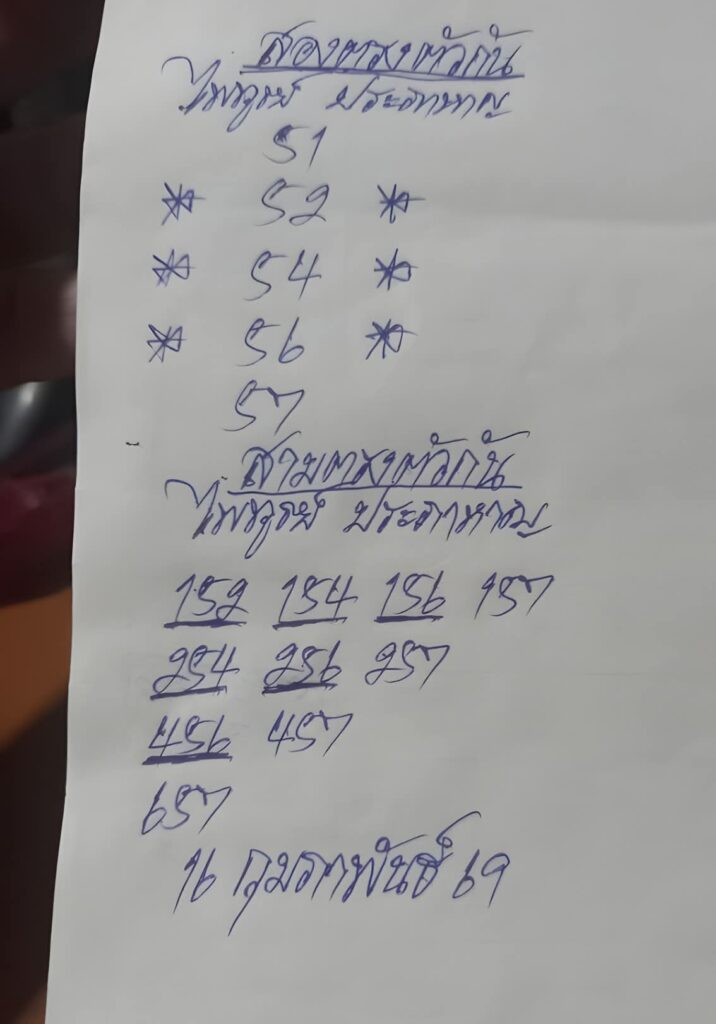 สองตรงตัวกัน
ไพฑูรย์ ประดาหาญ
51
* 52 *
* 54 *
* 56 *
57
สามตรงตัวกัน
ไพฑูรย์ ประดาหาญ
152 154 156 157
254 256 257
456 457
657
16 กุมภาพันธ์ 69